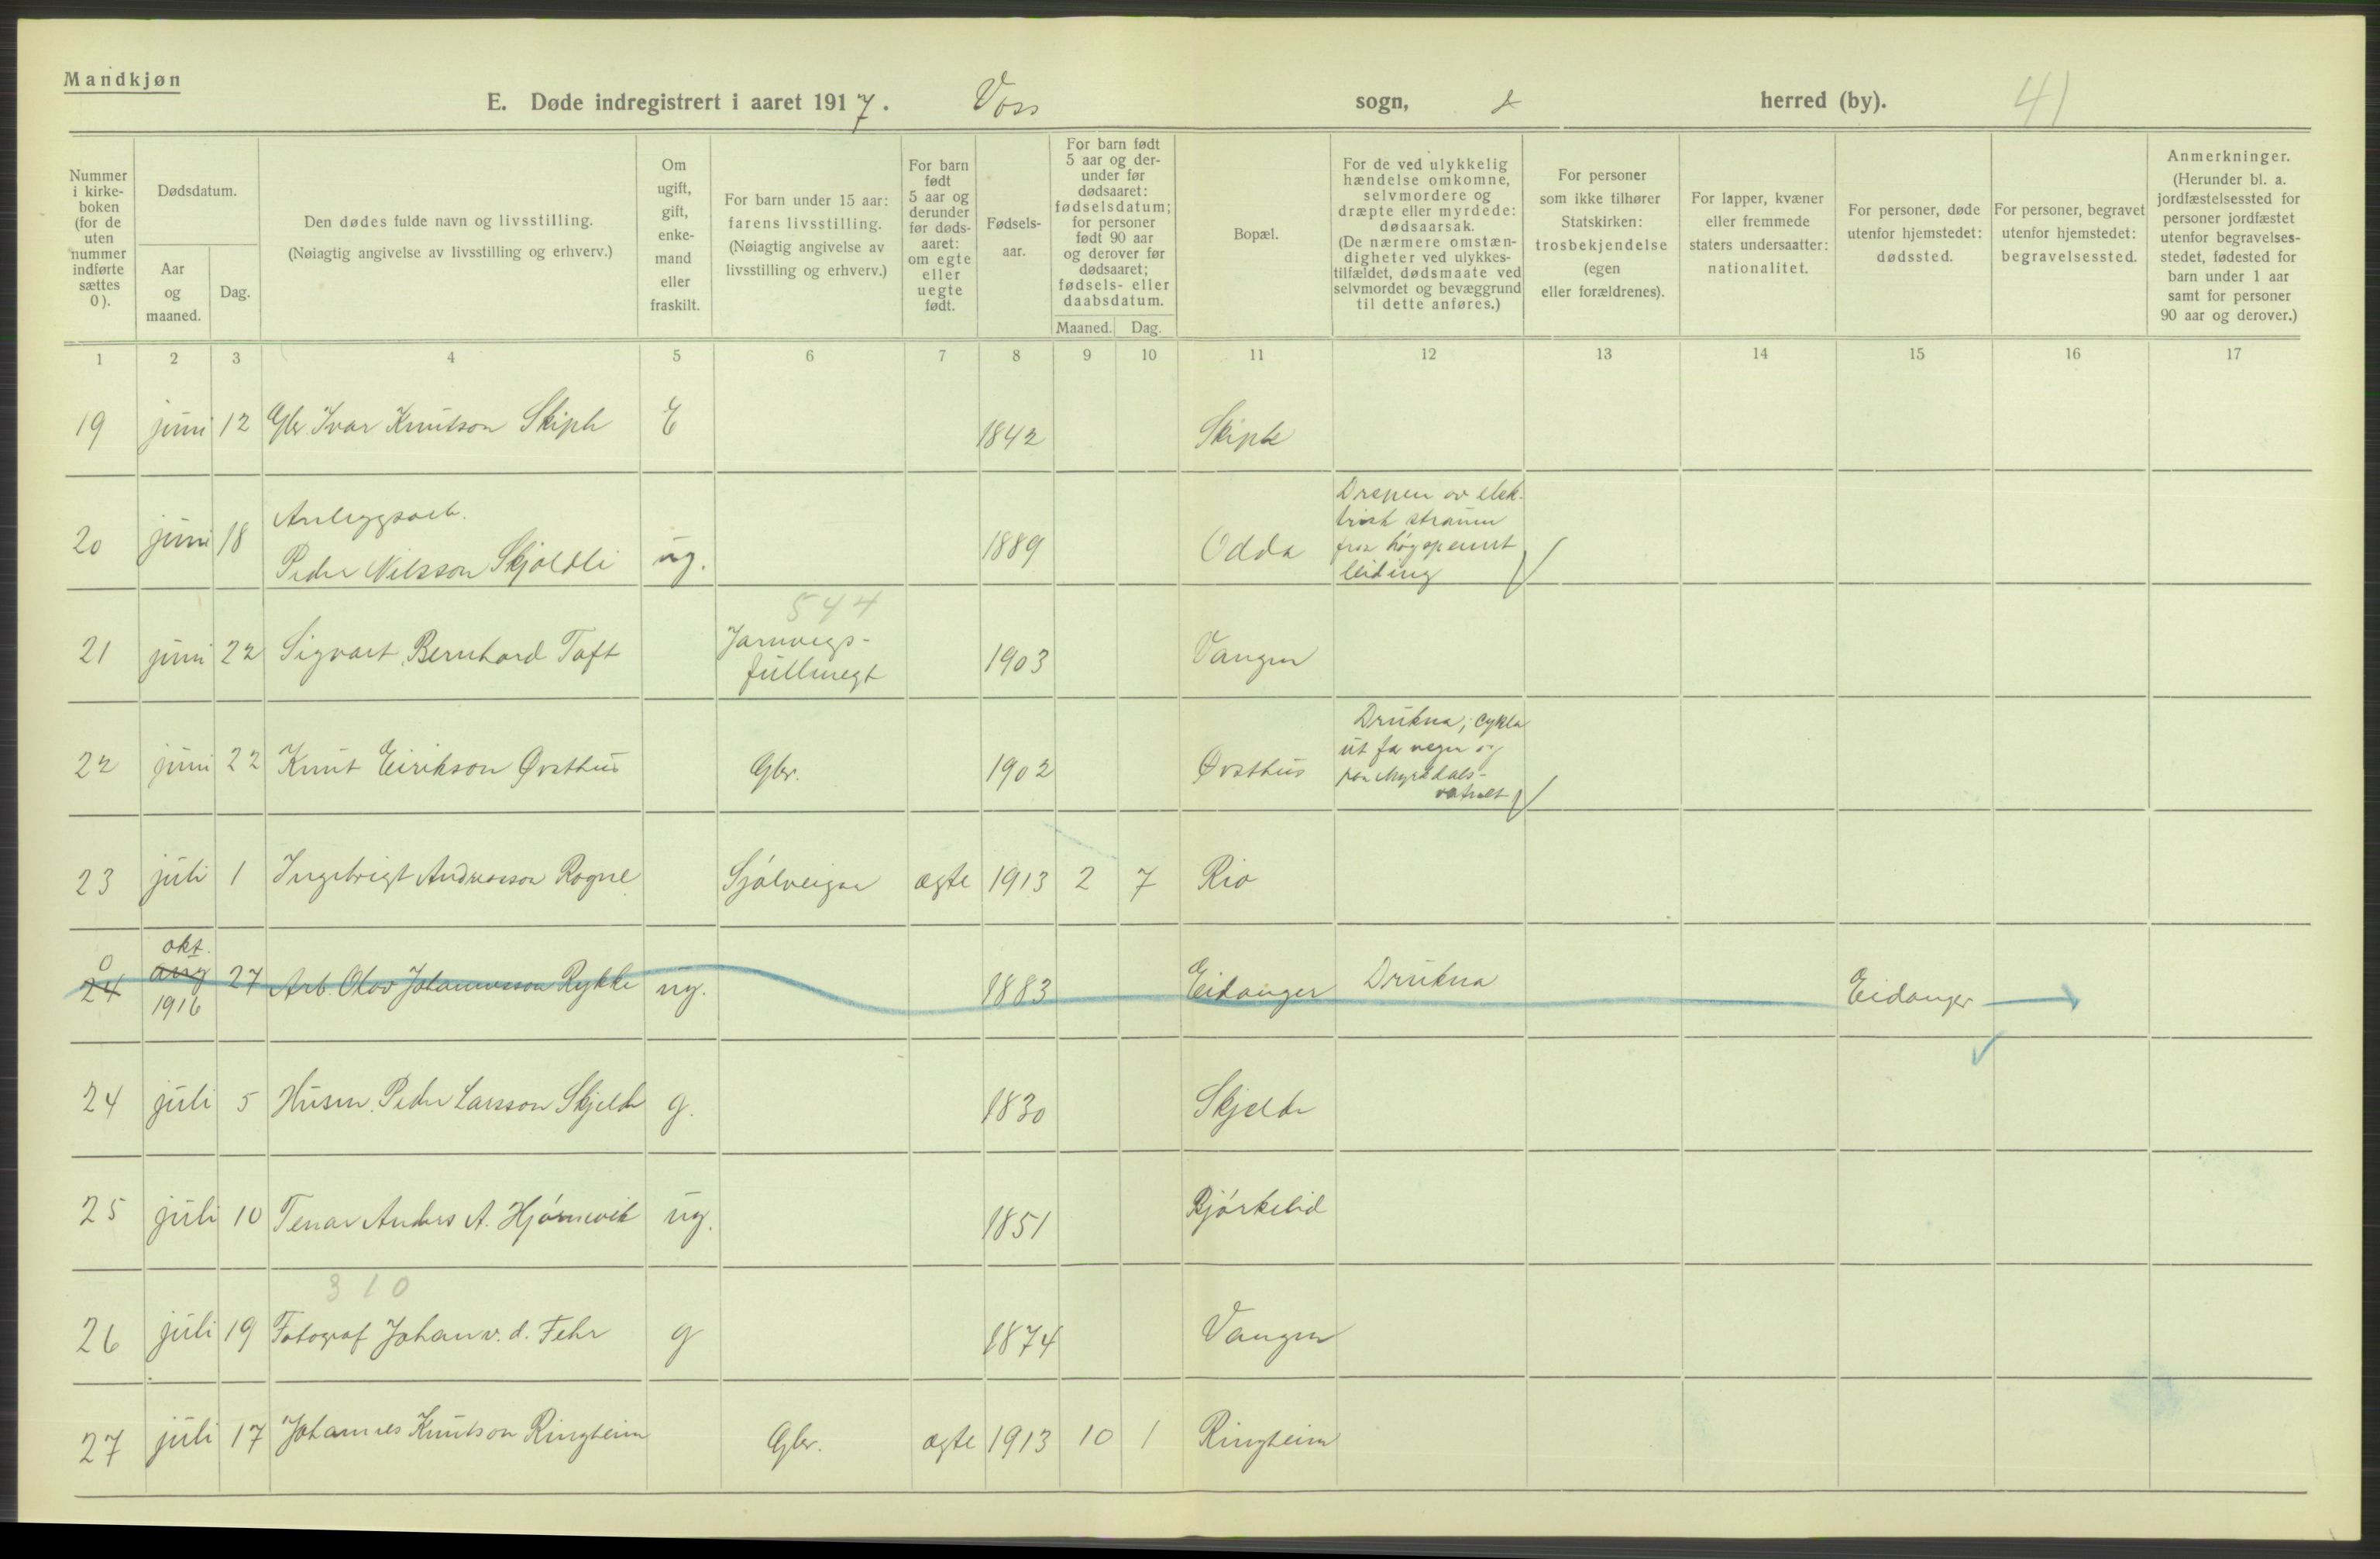 Mandkjøn
E. Døde indregistrert i aaret 1917. Voss sogn, herred (by). 41
Nummer i kirke-boken (for de uten nummer indførte sættes 0).
Dødsdatum.
Aar og maaned.
Dag.
Den dødes fulde navn og livsstilling.
(Nøiagtig angivelse av livsstilling og erhverv.)
Om ugift, gift, enke-mand eller fraskilt.
For barn under 15 aar: farens livsstilling.
(Nøiagtig angivelse av livsstilling og erhverv.)
For barn født 5 aar og derunder før døds-aaret: om egte eller uegte født.
Fødsels-aar.
For barn født 5 aar og der-under før dødsaaret: fødselsdatum; for personer født 90 aar og derover før dødsaaret; fødsels- eller daabsdatum.
Maaned. Dag.
Bopæl.
For de ved ulykkelig hændelse omkomne, selvmordere og dræpte eller myrdede: dødsaarsak.
(De nærmere omstæn-digheter ved ulykkes-tilfældet, dødsmaate ved selvmordet og bevæggrund til dette anføres.)
For personer som ikke tilhører Statskirken: trosbekjendelse (egen eller forældrenes).
For lapper, kvæner eller fremmede staters undersaatter: nationalitet.
For personer, døde utenfor hjemstedet: dødssted.
For personer, begravet utenfor hjemstedet: begravelsessted.
Anmerkninger.
(Herunder bl. a. jordfæstelsessted for personer jordfæstet utenfor begravelses-stedet, fødested for barn under 1 aar samt for personer 90 aar og derover.)
1 2 3 4 5 6 7 8 9 10 11 12 13 14 15 16 17
19 juni 12 Gbr. Ivar Knutson Skiple E 1842 Skiple
20 juni 18 Anleggsarb.
Peder Nilsson Skjoldli ug. 1889 Odda
Drepen av elek-
trisk straum
fraa høgspennt
leiding
544
21 juni 22 Sigvart Bernhard Toft Jarnvegs-
fullmegt 1903 Vangen
22 juni 22 Knut Eirikson Øvsthus Gbr. 1902 Øvsthus
Drukna; cykla
ut fra vegen og
paa Myrkdals-
vatnet
23 juli 1 Ingebrigt Andreasson Rogne Sjølveigar ægte 1913 2 7 Rio
0 okt.
24 aug 27 Arb. Olav Johannesson Rykke ug. 1883 Eidanger Drukna Eidanger
1916
24 juli 5 Husm. Peder Larsson Skjelde g. 1830 Skjelde
25 juli 10 Tenar Anders A. Hjørnevik ug. 1851 Bjørkelid
310
26 juli 19 Fotograf Johan v. d. Fehr g 1874 Vangen
27 juli 17 Johannes Knutson Ringheim Gbr. ægte 1913 10 1 Ringheim